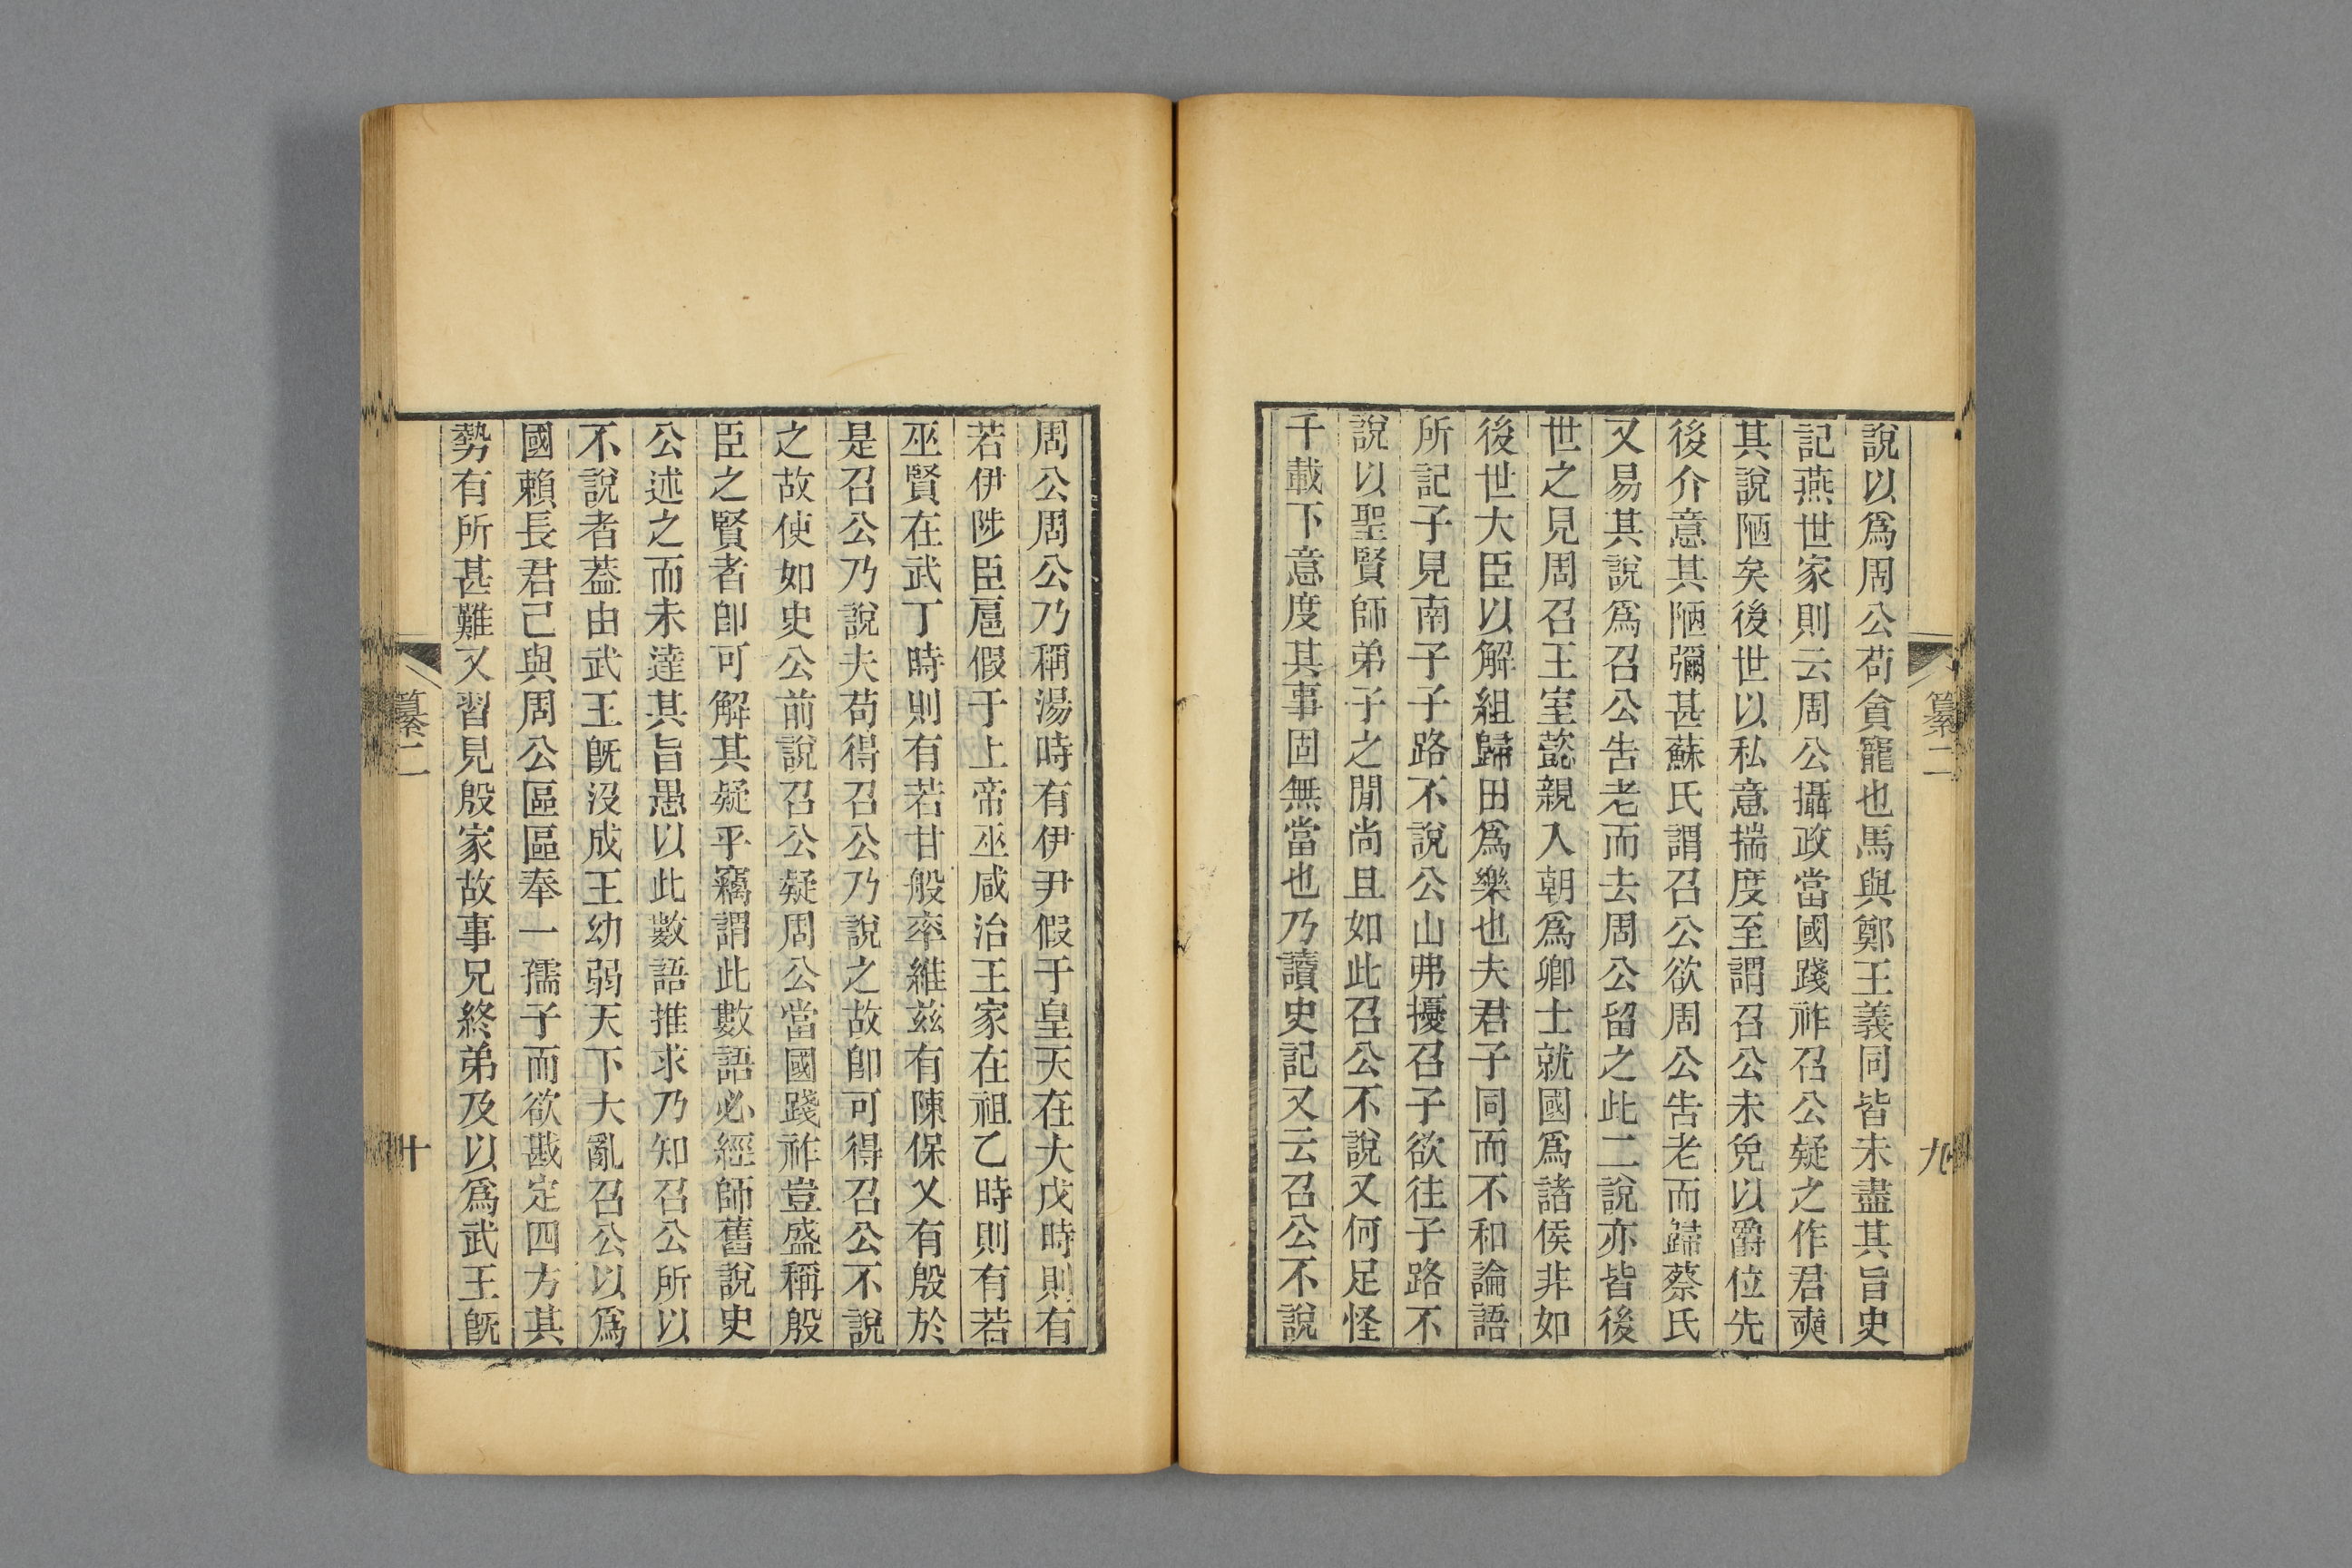 纂二
九
說以爲周公苟貪寵也馬與鄭王義同皆未盡其旨史
記燕世家則云周公攝政當國踐祚召公疑之作君奭
其說陋矣後世以私意揣度至謂召公未免以爵位先
後介意其陋彌甚蘇氏謂召公欲周公告老而歸蔡氏
又易其說爲召公告老而去周公留之此二說亦皆後
世之見周召王室懿親入朝爲卿士就國爲諸侯非如
後世大臣以解組歸田爲樂也夫君子同而不和論語
所記子見南子子路不說公山弗擾召子欲往子路不
說以聖賢師弟子之閒尚且如此召公不說又何足怪
千載下意度其事固無當也乃讀史記又云召公不說
周公周公乃稱湯時有伊尹假于皇天在大戊時則有
若伊陟臣扈假于上帝巫咸治王家在祖乙時則有若
巫賢在武丁時則有若甘般率維茲有陳保乂有殷於
是召公乃說夫苟得召公乃說之故卽可得召公不說
之故使如史公前說召公疑周公當國踐祚豈盛稱殷
臣之賢者卽可解其疑乎竊謂此數語必經師舊說史
公述之而未達其旨愚以此數語推求乃知召公所以
不說者葢由武王旣沒成王幼弱天下大亂召公以爲
國賴長君己與周公區區奉一孺子而欲戡定四方其
勢有所甚難又習見殷家故事兄終弟及以爲武王旣
纂二
十